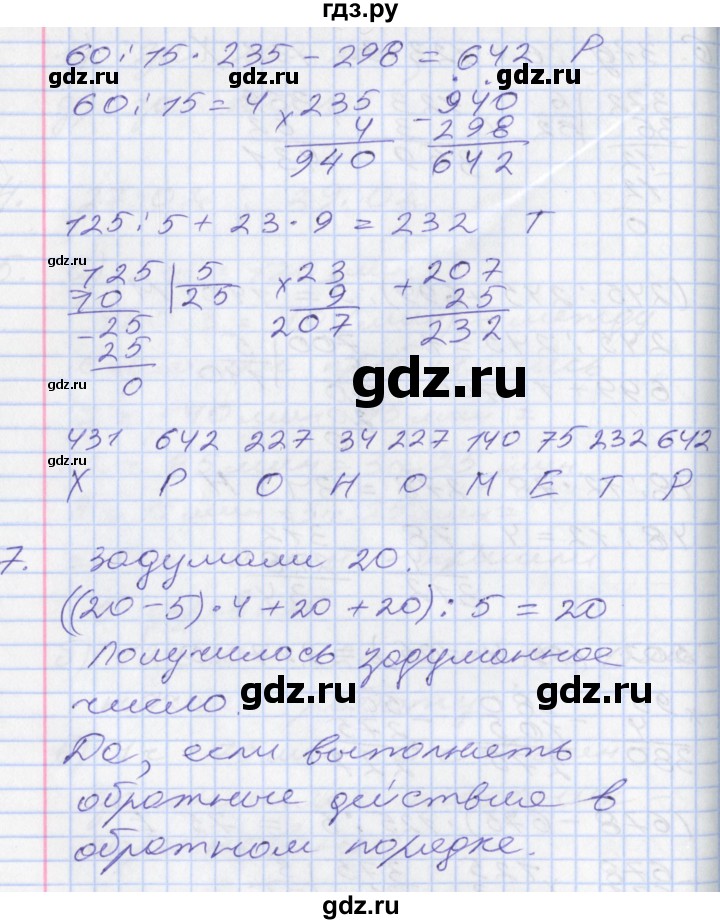 гдз.ру
60 : 15 · 235 - 298 = 642 Р
gdz.ru gdz.ru gdz.ru
60 : 15 = 4 × 235 - 940
4 298
940 642
125 : 5 + 23 · 9 = 232 Т
gdz.ru
- 125 | 5 × 23 + 207
10 25 9 25
- 25 207 232
25
0
gdz.ru gdz.ru
431 642 227 34 227 140 75 232 642
gdz.ru
Х Р О Н О М Е Т Р
7. Задумали 20.
((20 - 5) · 4 + 20 + 20) : 5 = 20
Получилось задуманное
gdz.ru gdz.ru
число.
Да, если выполнять
обратные действия в
gdz.ru gdz.ru
обратном порядке.